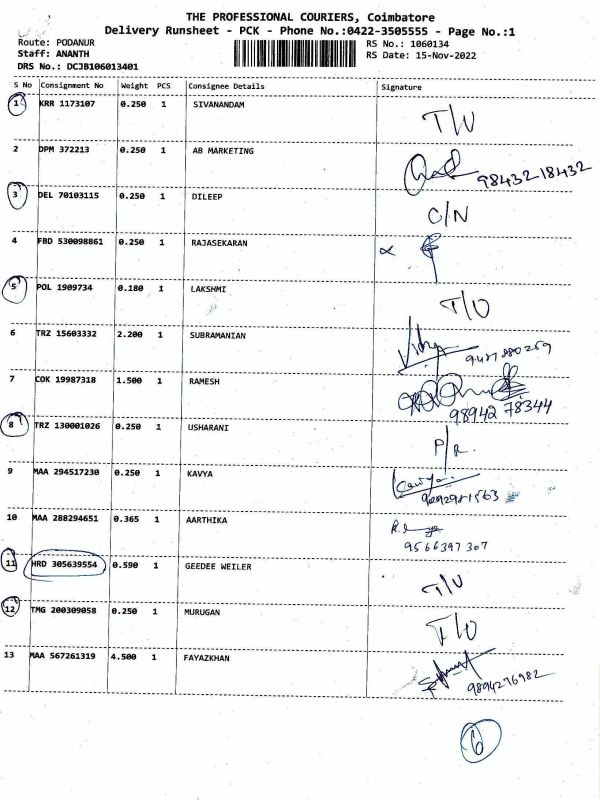 THE PROFESSIONAL COURIERS, Coimbatore
Delivery Runsheet - PCK - Phone No.:0422-3505555 - Page No.:1
Route: PODANUR RS No.: 1060134
Staff: ANANTH RS Date: 15-Nov-2022
DRS No.: DCJB106013401
S No Consignment No Weight PCS Consignee Details Signature
1 KRR 1173107 0.250 1 SIVANANDAM T/U
2 DPM 372213 0.250 1 AB MARKETING
98432 18432
3 DEL 70103115 0.250 1 DILEEP C/N
4 FBD 530098861 0.250 1 RAJASEKARAN
5 POL 1909734 0.180 1 LAKSHMI T/U
6 TRZ 15603332 2.200 1 SUBRAMANIAN
7 COK 19987318 1.500 1 RAMESH
98942 78344
8 TRZ 130001026 0.250 1 USHARANI P/R
9 MAA 294517230 0.250 1 KAVYA Kavya
10 MAA 288294651 0.365 1 AARTHIKA
9566397307
11 HRD 305639554 0.590 1 GEEDEE WEILER T/U
12 TMG 200309058 0.250 1 MURUGAN T/U
13 MAA 567261319 4.500 1 FAYAZKHAN
9894276982
6